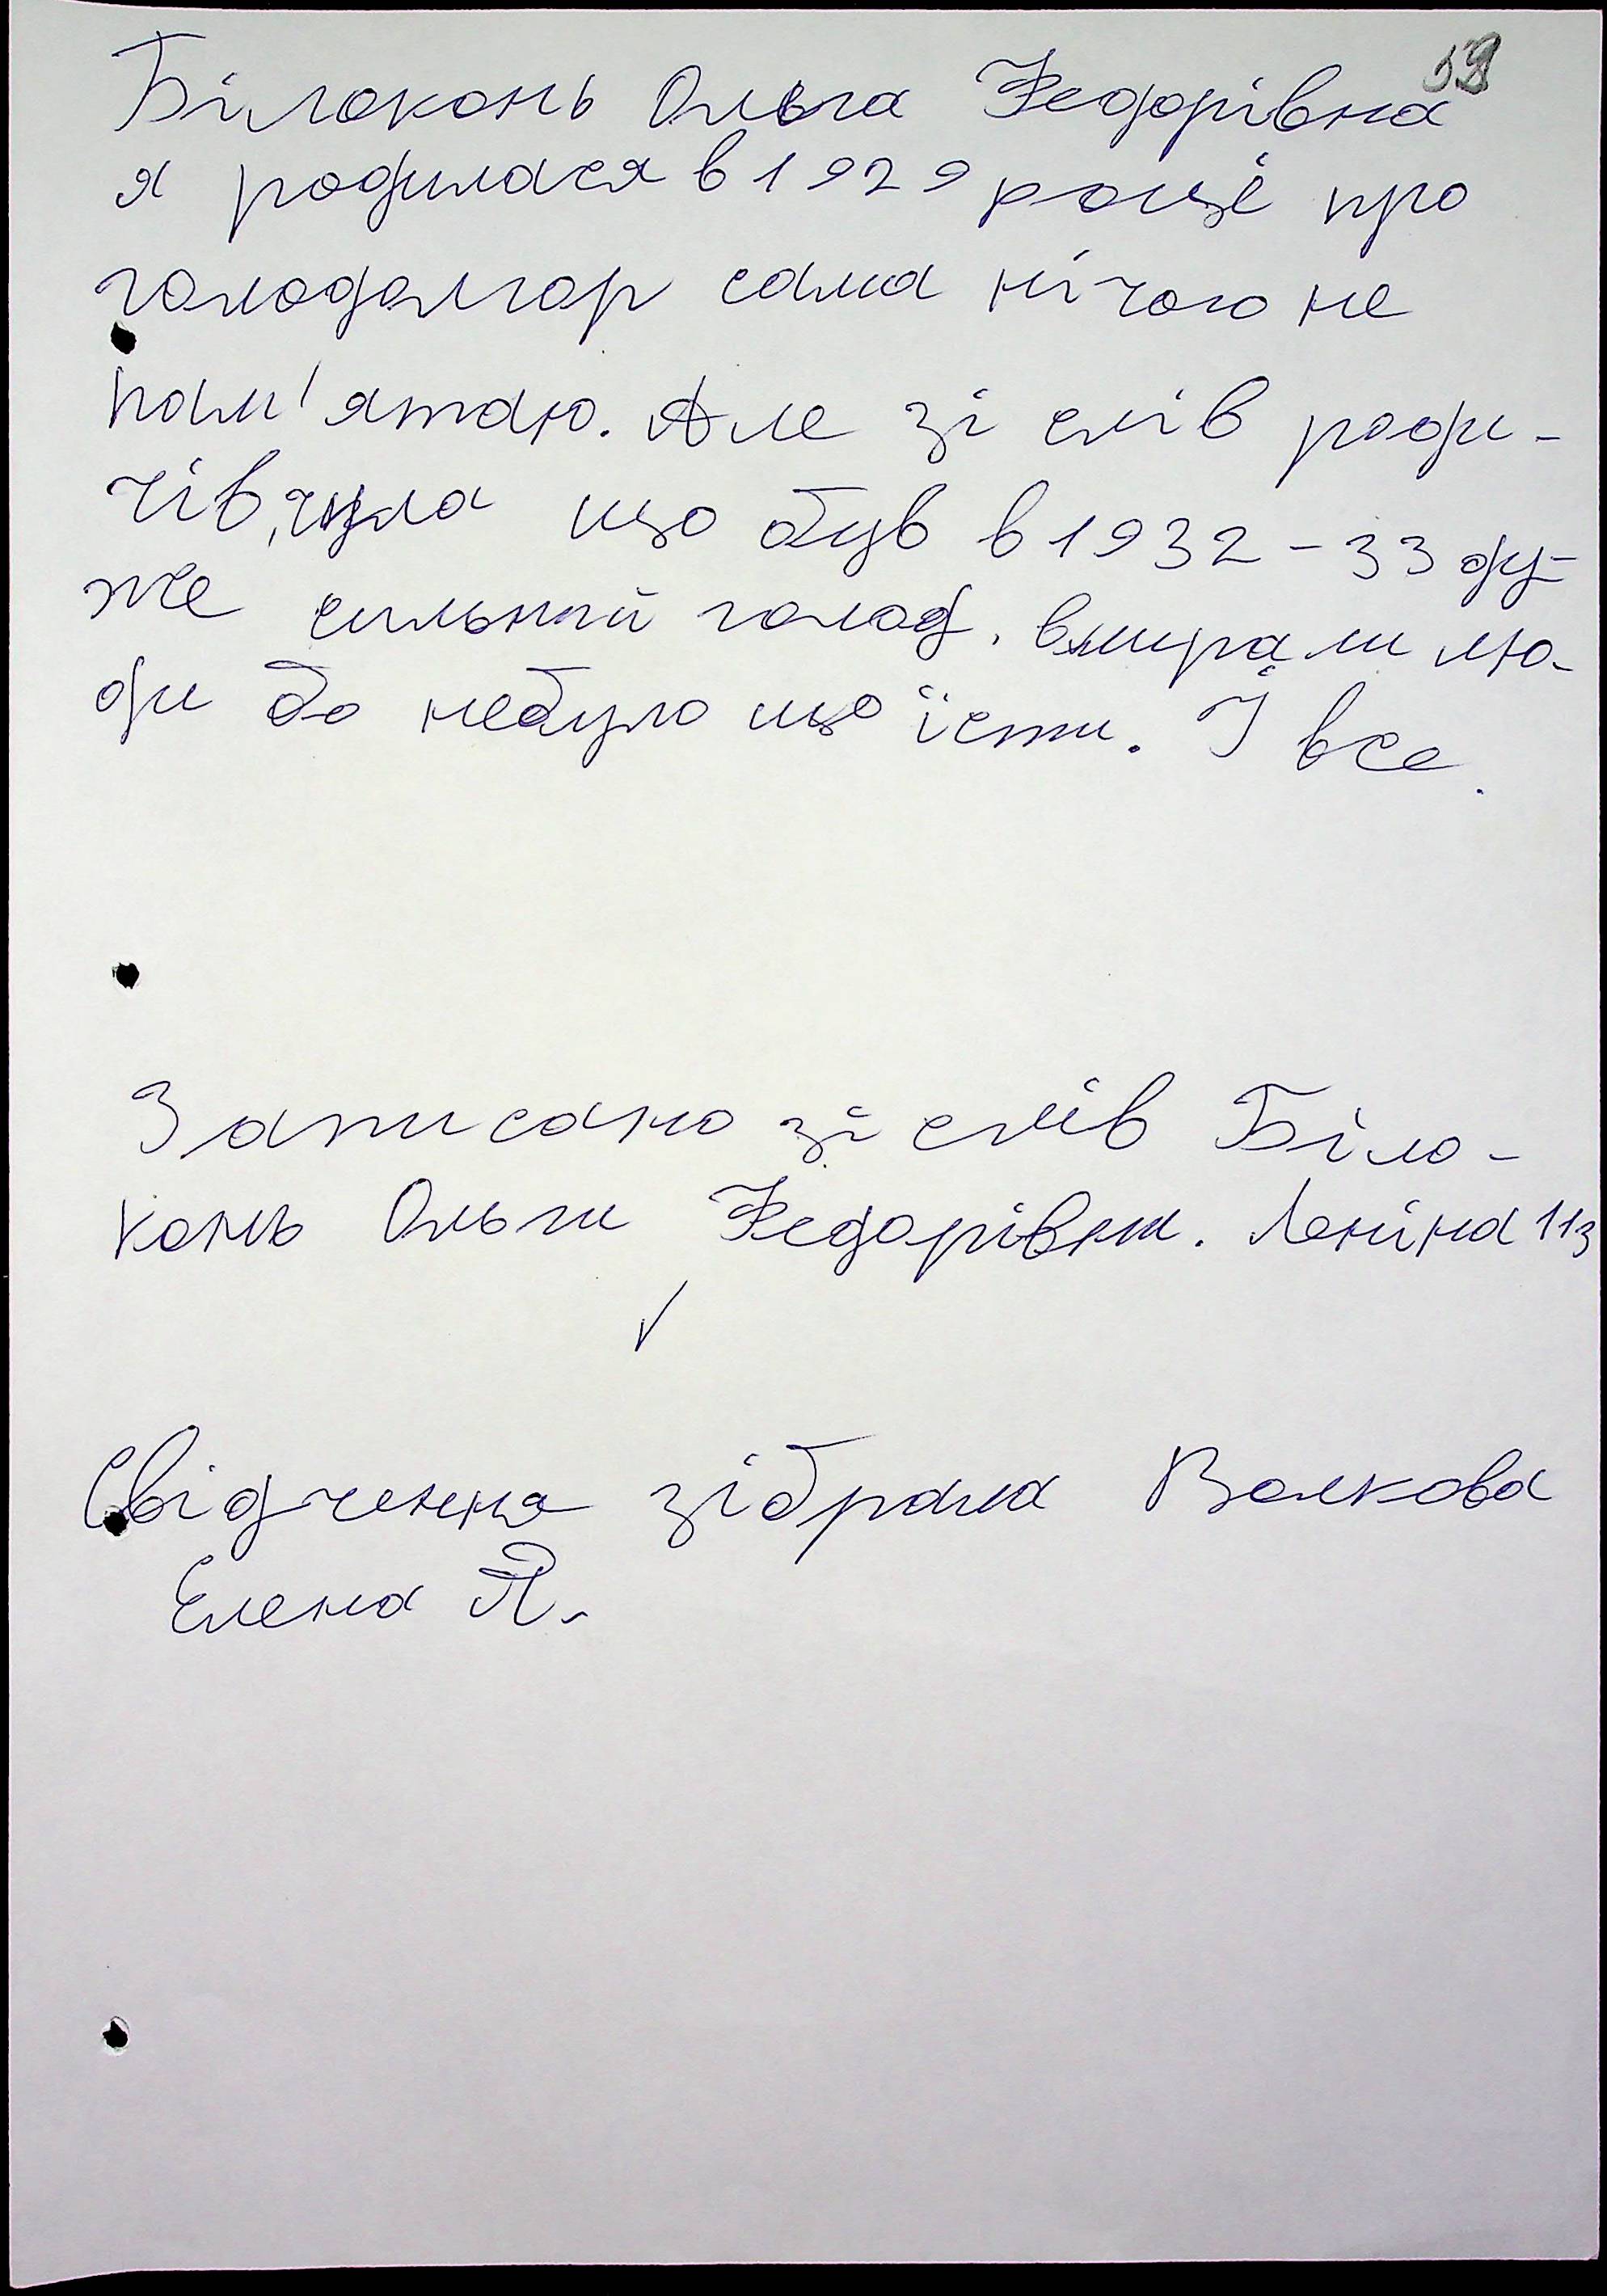 Білоконь Ольга Федорівна
я родилася в 1929 році про
голодомор сама нічого не
пам'ятаю. Але зі слів роди-
чів, чула що був в 1932-33 ду-
же сильний голод, вмирали лю-
ди бо небуло що їсти. І все.
Записано зі слів Біло-
конь Ольги Федорівни. Леніна 113
Свідчення зібрала Волкова
Елена Я.